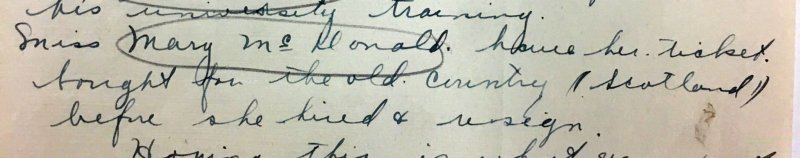 his university training.
Miss Mary McDonald. have her. ticket.
bought for the old. country (Scotland)
before she hired & resign.
Hoping this is what